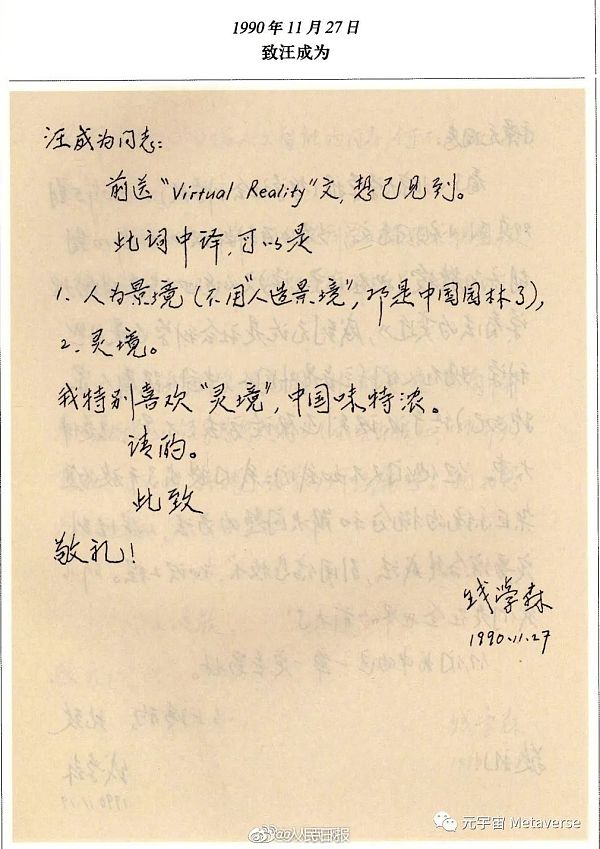 1990年11月27日
致汪成为
汪成为同志：
前送“Virtual Reality”文，想已见到。
此词中译，可以是
1. 人为景境（不用“人造景境”，那是中国园林了），
2. 灵境。
我特别喜欢“灵境”，中国味特浓。
请酌。
此致
敬礼！
钱学森
1990.11.27
@人民日报
元宇宙 Metaverse